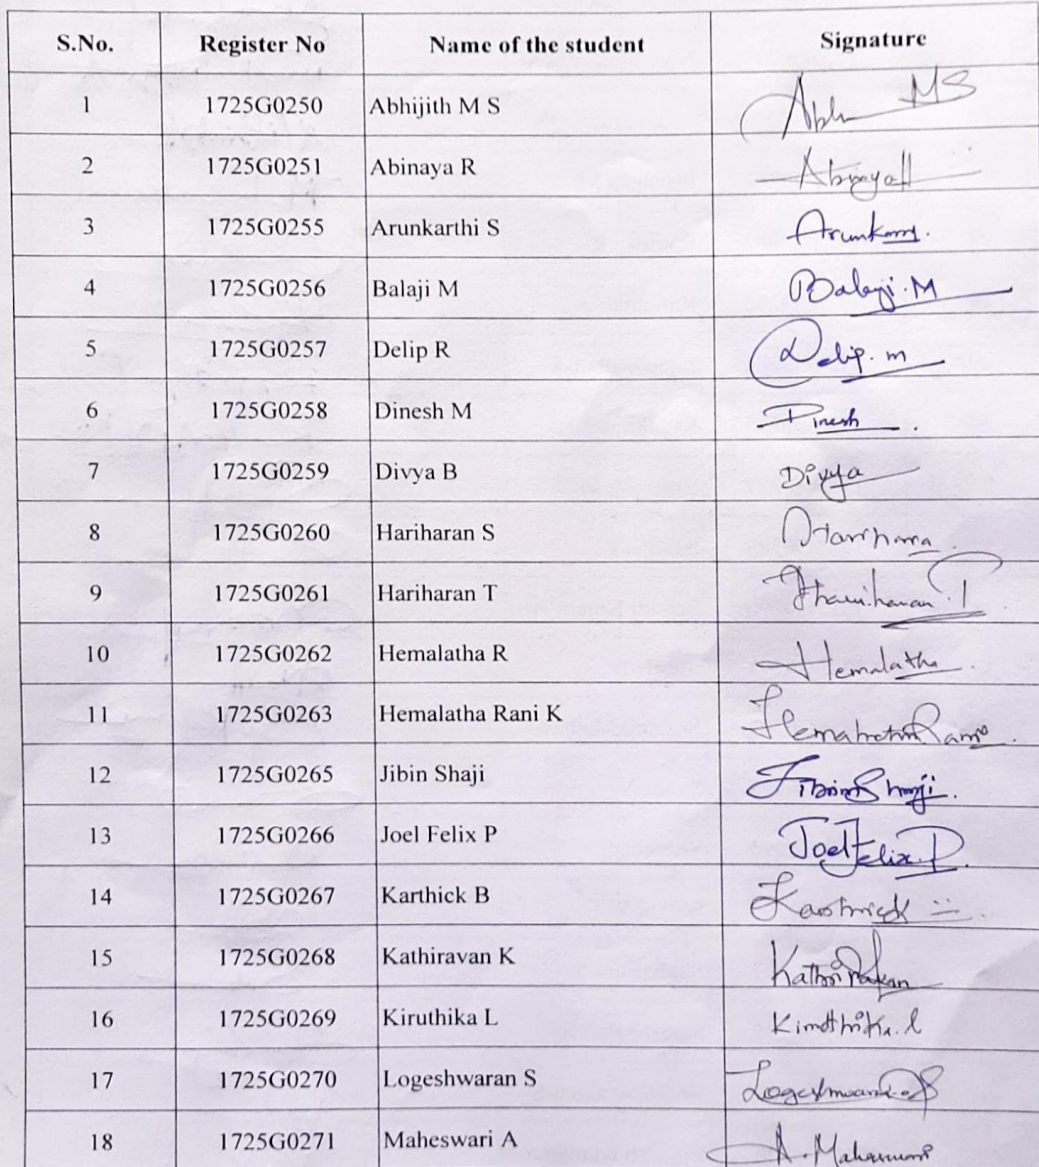 S.No. Register No Name of the student Signature
1 1725G0250 Abhijith M S Abh MS
2 1725G0251 Abinaya R
3 1725G0255 Arunkarthi S
4 1725G0256 Balaji M Balaji.M
5 1725G0257 Delip R Delip.m
6 1725G0258 Dinesh M Dinesh
7 1725G0259 Divya B Divya
8 1725G0260 Hariharan S
9 1725G0261 Hariharan T Hariharan T
10 1725G0262 Hemalatha R Hemalatha
11 1725G0263 Hemalatha Rani K
12 1725G0265 Jibin Shaji Jibin Shaji.
13 1725G0266 Joel Felix P Joel Felix.P.
14 1725G0267 Karthick B Karthick
15 1725G0268 Kathiravan K
16 1725G0269 Kiruthika L
17 1725G0270 Logeshwaran S
18 1725G0271 Maheswari A